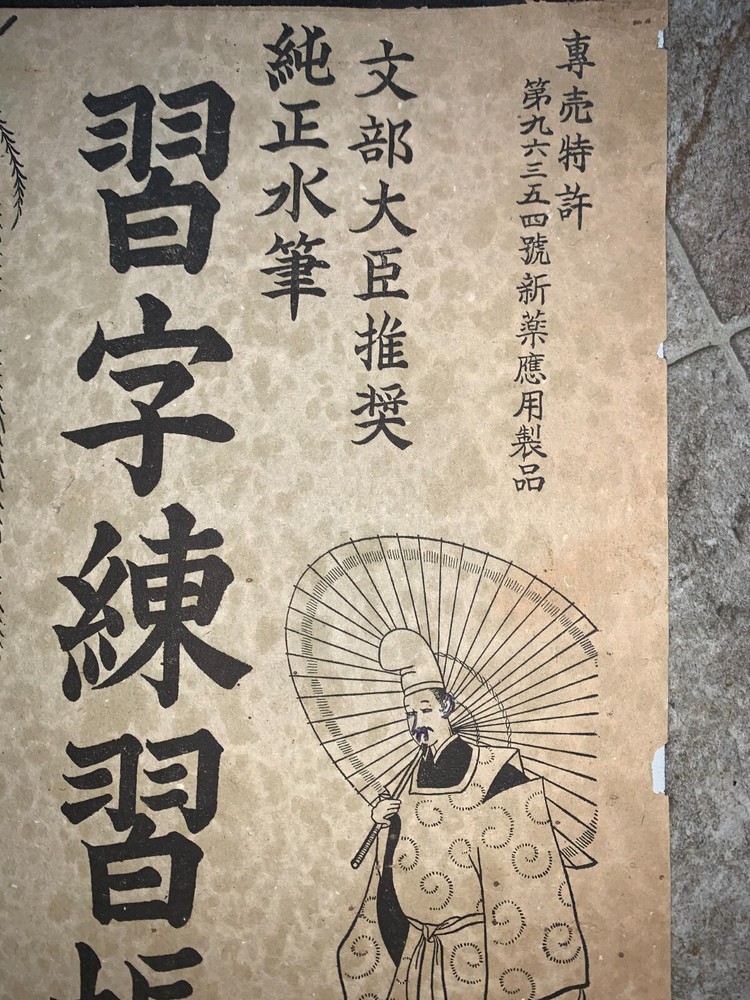 專売特許
第九六三五四號新薬應用製品
文部大臣推奨
純正水筆
習字練習帳